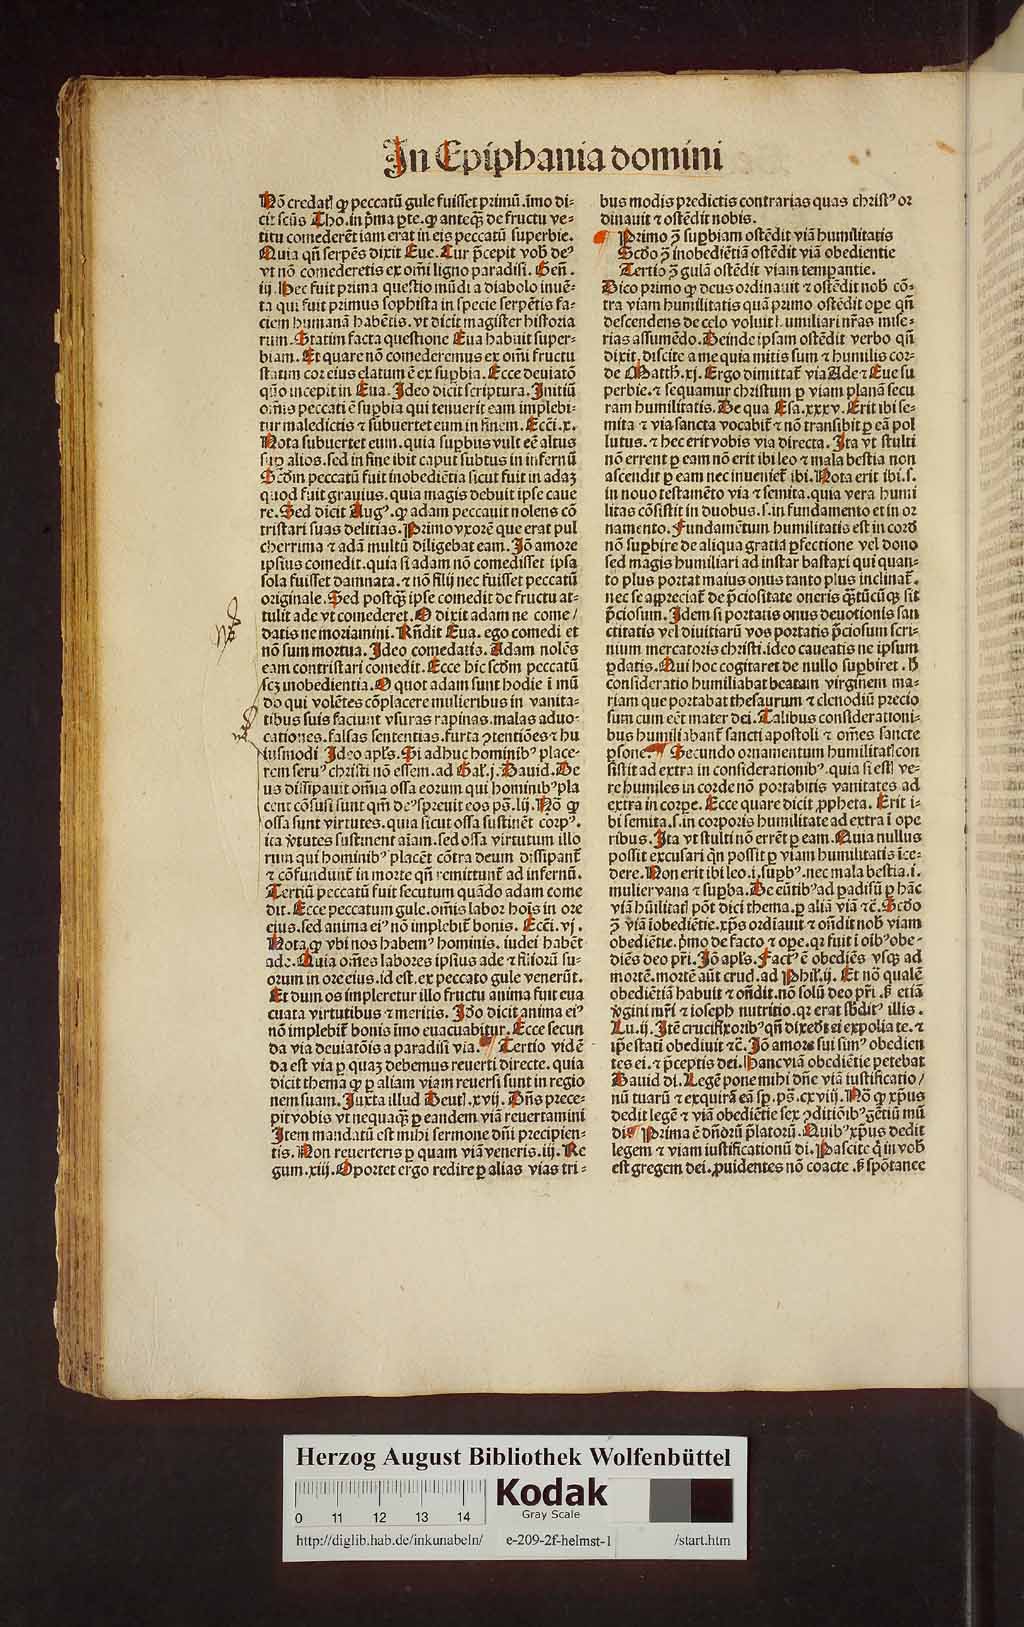 In Epiphania domini
Nō credatꝭ ꝙ peccatū gule fuisset primū.imo di-
cit scūs Tho.in p̄ma ꝑte.ꝙ anteqꝫ de fructu ve-
titu comederēt iam erat in eis peccatū superbie.
Quia qn̄ serpēs dixit Eue.Cur p̄cepit vob̄ deꝰ
vt nō comederetis ex om̄i ligno paradisi. Gen̄.
iij.Hec fuit prima questio mūdi a diabolo inuē-
ta qui fuit primus sophista in specie serpētis fa-
ciem humanā habētis.vt dicit magister historia
rum.Statim facta questione Eua habuit super-
biam.Et quare nō comederemus ex om̄i fructu
statim cor eius elatum ē ex suꝑbia.Ecce deuiatō
quō incepit in Eua.Ideo dicit scriptura.Initiū
om̄is peccati ē suꝑbia qui tenuerit eam implebi-
tur maledictis ⁊ subuertet eum in finem.Ecc̄i.x.
Nota subuertet eum.quia suꝑbus vult eē altus
suꝑ alios.sed in fine ibit caput subtus in infernū
Scd̄m peccatū fuit inobediētia sicut fuit in adaꝫ
quod fuit grauius.quia magis debuit ipse caue
re.Sed dicit Augꝰ.ꝙ adam peccauit nolens cō
tristari suas delitias.Primo vxorē que erat pul
cherrima ⁊ adā multū diligebat eam.Iō amore
ipsius comedit.quia si adam nō comedisset ipsa
sola fuisset damnata.⁊ nō filij nec fuisset peccatū
originale.Sed postqꝫ ipse comedit de fructu at-
tulit ade vt comederet.O dixit adam ne come/
datis ne moriamini.Rn̄dit Eua.ego comedi et
nō sum mortua.Ideo comedatis.Adam nolēs
eam contristari comedit.Ecce hic scd̄m peccatū
scꝫ inobedientia.O quot adam sunt hodie ī mū
do qui volētes cōplacere mulieribus in vanita-
tibus suis faciunt vsuras rapinas.malas aduo-
cationes.falsas sententias.furta ꝯtentiōes ⁊ hu
iusmodi Ideo apl̄s.Si adhuc hominibꝰ place-
rem seruꝰ christi nō essem.ad Gal̄.j.Dauid.De
us dissipauit om̄ia ossa eorum qui hominibꝰ pla
cent cōfusi sunt qm̄ deꝰ spreuit eos pꝫ.lij.Nō ꝙ
ossa sunt virtutes.quia sicut ossa sustinēt corpꝰ.
ita v̄tutes sustinent aīam.sed ossa virtutum illo
rum qui hominibꝰ placēt cōtra deum dissipant̄
⁊ cōfundunt̄ in morte qn̄ remittunt̄ ad infernū.
Tertiū peccatū fuit secutum quādo adam come
dit.Ecce peccatum gule.om̄is labor hoīs in ore
eius.sed anima eiꝰ nō implebit̄ bonis. Ecc̄i.vj.
Nota ꝙ vbi nos habemꝰ hominis. iudei habēt
ade.Quia om̄es labores ipsius ade ⁊ filiorū su-
orum in ore eius.id est.ex peccato gule venerūt.
Et dum os impleretur illo fructu anima fuit eua
cuata virtutibus ⁊ meritis. Idō dicit anima eiꝰ
nō implebit̄ bonis imo euacuabitur.Ecce secun
da via deuiatōis a paradisi via. Tertio vidē
da est via ꝑ quaꝫ debemus reuerti directe. quia
dicit thema ꝙ ꝑ aliam viam reuersi sunt in regio
nem suam.Iuxta illud Deutꝭ.xvij. Dn̄s prece-
pit vobis vt nequaqꝫ ꝑ eandem viā reuertamini
Item mandatū est mihi sermone dn̄i precipien-
tis.Non reuerteris ꝑ quam viā veneris.iij.Re
gum.xiij.Oportet ergo redire ꝑ alias vias tri-
bus modis predictis contrarias quas christꝰ or
dinauit ⁊ ostēdit nobis.
Primo ꝯ̄ suꝑbiam ostēdit viā humilitatis
Scd̄o ꝯ̄ inobediētiā ostēdit viā obedientie
Tertio ꝯ̄ gulā ostēdit viam temꝑantie.
Dico primo ꝙ deus ordinauit ⁊ ostēdit nob̄ cō-
tra viam humilitatis quā primo ostēdit oꝑe qn̄
descendens de celo voluit humiliari nr̄as mise-
rias assumēdo.Deinde ipsam ostēdit verbo qn̄
dixit.discite a me quia mitis sum ⁊ humilis cor-
de Matth̄.xj.Ergo dimittat̄ via Ade ⁊ Eue su
perbie.⁊ sequamur christum ꝑ viam planā secu
ram humilitatis.De qua Esa.xxxv.Erit ibi se-
mita ⁊ via sancta vocabit̄ ⁊ nō transibit ꝑ eā pol
lutus.⁊ hec erit vobis via directa.Ita vt stulti
nō errent ꝑ eam nō erit ibi leo ⁊ mala bestia non
ascendit ꝑ eam nec inueniet̄ ibi.Nota erit ibi.s.
in nouo testamēto via ⁊ semita.quia vera humi
litas cōsistit in duobus.s.in fundamento et in or
namento.Fundamētum humilitatis est in cord̄
nō suꝑbire de aliqua gratia ꝑfectione vel dono
sed magis humiliari ad instar bastaxi qui quan-
to plus portat maius onus tanto plus inclinat̄.
nec se apreciat̄ de p̄ciositate oneris qꝫtūcūqꝫ sit
p̄ciosum.Idem si portatis onus deuotionis san
ctitatis vel diuitiarū vos portatis p̄ciosum scri-
nium mercatoris christi.ideo caueatis ne ipsum
ꝑdatis.Qui hoc cogitaret de nullo suꝑbiret.H̄
consideratio humiliabat beatam virginem ma-
riam que portabat thesaurum ⁊ clenodiū precio
sum cum eēt mater dei.Talibus consideratiōni-
bus humiliabant̄ sancti apostoli ⁊ om̄es sancte
ꝑsone. Secundo ornamentum humilitatꝭ con
sistit ad extra in considerationibꝰ.quia si estꝭ ve-
re humiles in corde nō portabitis vanitates ad
extra in corꝑe.Ecce quare dicit ꝓpheta. Erit i-
bi semita.s.in corporis humilitate ad extra ī oꝑe
ribus.Ita vt stulti nō errēt ꝑ eam.Quia nullus
possit excusari qn̄ possit ꝑ viam humilitatis īce-
dere.Non erit ibi leo.i.suꝑbꝰ.nec mala bestia.i.
mulier vana ⁊ suꝑba.De eūtibꝰ ad ꝑadisū ꝑ hāc
viā hūilitatꝭ pōt dici thema.ꝑ aliā viā ⁊c̄.Scd̄o
ꝯ̄ viā īobediētie.xp̄s ordīauit ⁊ on̄dit nob̄ viam
obediētie.p̄mo de facto ⁊ oꝑe.qꝛ fuit ī oībꝰ obe-
diēs deo pr̄i.Iō apl̄s.Factꝰ ē obediēs vsqꝫ ad
mortē.mortē aūt crucꝭ.ad Phil̄.ij. Et nō qualē
obediētiā habuit ⁊ on̄dit.nō solū deo pr̄i.s̄ etiā
v̄gini mr̄i ⁊ ioseph nutritio.qꝛ erat sb̄ditꝰ illis.
Lu.ij.Itē crucifixoribꝰ qn̄ dixerūt ei expolia te.⁊
ip̄e statī obediuit ⁊c̄.Iō amore sui simꝰ obedien
tes ei.⁊ p̄ceptis dei.Hanc viā obediētie petebat
Dauid di.Legē pone mihi dn̄e viā iustificatio/
nū tuarū ⁊ exquirā eā sꝑ.ps̄.cxviij. Nō ꝙ xp̄us
dedit legē ⁊ viā obediētie sex ꝯditiōibꝰ gētiū mū
di. Prima ē dn̄orū p̄latorū.Quibꝰ xp̄us dedit
legem ⁊ viam iustificationū di.Pascite q̇ in vob̄
est gregem dei.ꝓuidentes nō coacte.s̄ spōtanee
Herzog August Bibliothek Wolfenbüttel
0 11 12 13 14
Kodak
Gray Scale
http://diglib.hab.de/inkunabeln/ e-209-2f-helmst-1 /start.htm